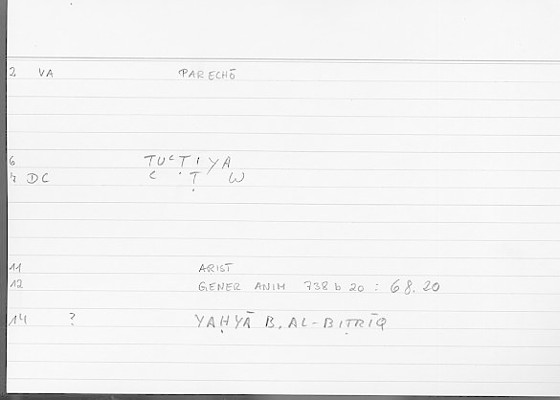 2 VA PARECHŌ
6 TUᶜṬIYA
7 DC C Ṭ W
11 ARIST
12 GENER ANIM 738 b 20 : 68.20
14 ? YAḤYĀ B. AL-BIṬRĪQ